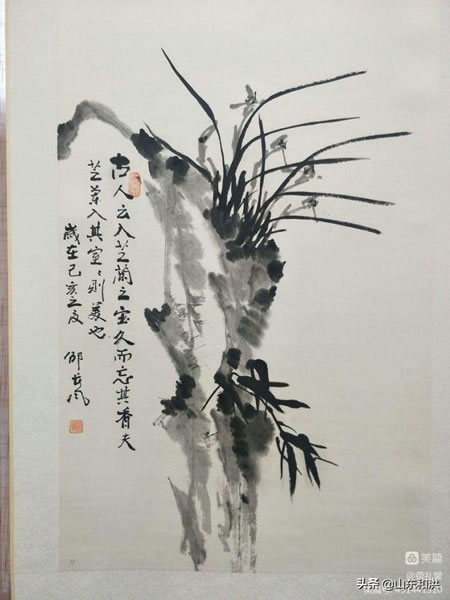 古人云入芝蘭之室久而忘其香夫
芝蘭入其室〻則美也
歲在己亥之夏 邵
美篇
头条 @山东和洪